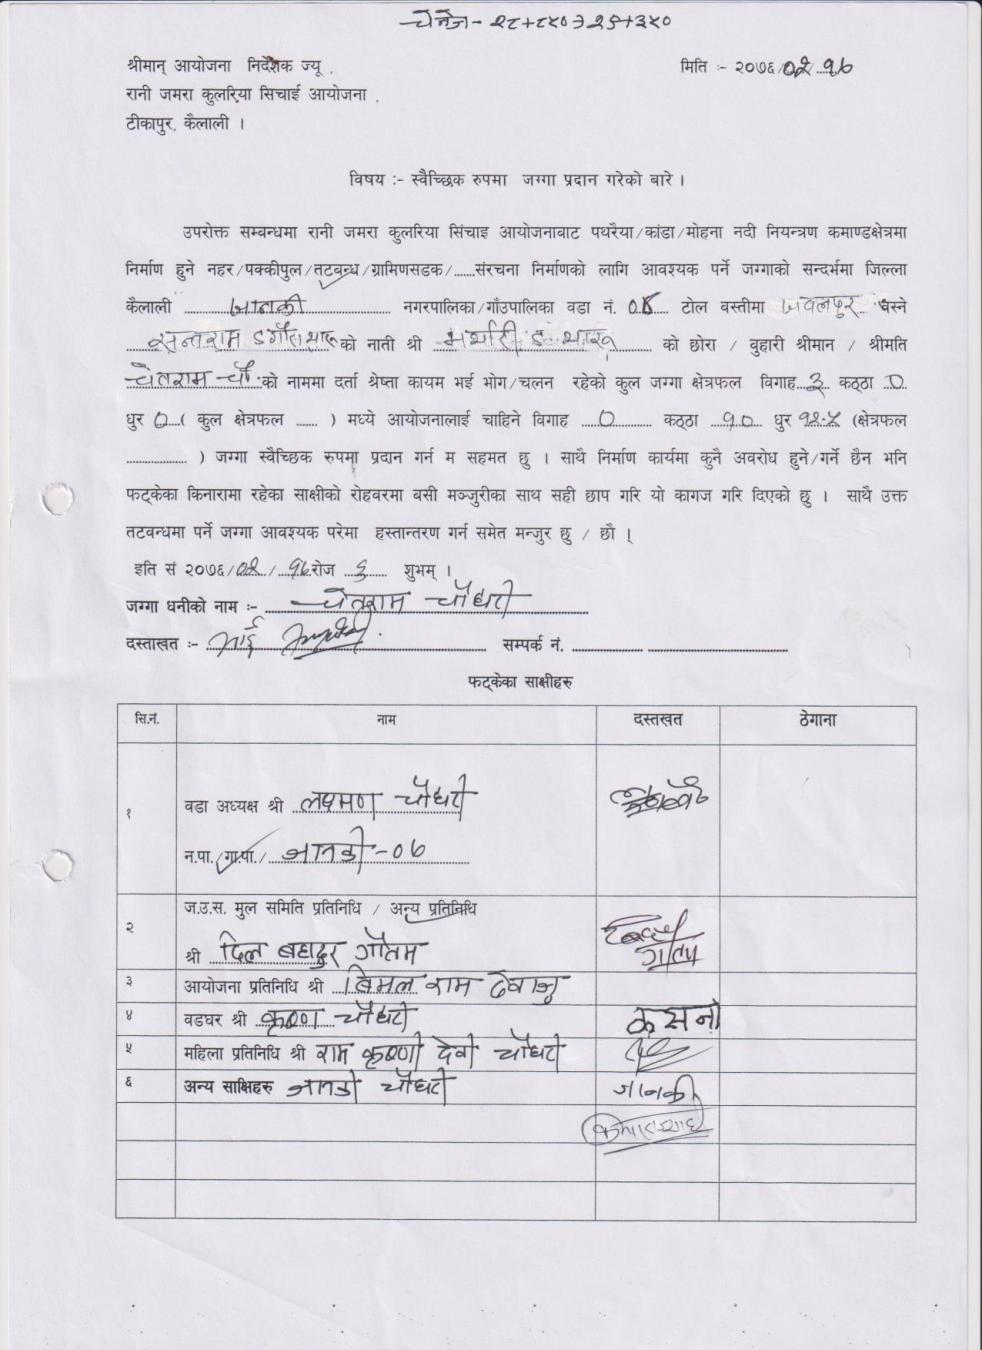 चेनेज - २८+८५० देखि २९+३५०
श्रीमान् आयोजना निर्देशक ज्यू ,
मिति :- २०७६/०२/१७
रानी जमरा कुलरिया सिचाई आयोजना ,
टीकापुर, कैलाली ।
विषय :- स्वैच्छिक रुपमा जग्गा प्रदान गरेको बारे ।
उपरोक्त सम्बन्धमा रानी जमरा कुलरिया सिंचाइ आयोजनाबाट पथरैया/कांडा/मोहना नदी नियन्त्रण कमाण्डक्षेत्रमा
निर्माण हुने नहर/पक्कीपुल/तटबन्ध/ग्रामिणसडक/......संरचना निर्माणको लागि आवश्यक पर्ने जग्गाको सन्दर्भमा जिल्ला
कैलाली जानकी नगरपालिका/गाँउपालिका वडा नं. टोल वस्तीमा जवलपुर बस्ने
सन्तराम डगौरा थारु को नाती श्री थारु को छोरा / वुहारी श्रीमान / श्रीमति
चेतराम चौ. को नाममा दर्ता श्रेष्ता कायम भई भोग/चलन रहेको कुल जग्गा क्षेत्रफल विगाह ३ कठ्ठा 0
धुर 0 ( कुल क्षेत्रफल ...... ) मध्ये आयोजनालाई चाहिने विगाह 0 कठ्ठा १० धुर १२.५ (क्षेत्रफल
................ ) जग्गा स्वैच्छिक रुपमा प्रदान गर्न म सहमत छु । साथै निर्माण कार्यमा कुनै अवरोध हुने/गर्ने छैन भनि
फट्केका किनारामा रहेका साक्षीको रोहवरमा बसी मञ्जुरीका साथ सही छाप गरि यो कागज गरि दिएको छु । साथै उक्त
तटवन्धमा पर्ने जग्गा आवश्यक परेमा हस्तान्तरण गर्न समेत मन्जुर छु / छौ ।
इति सं २०७६/०२/१७ रोज ६ शुभम् ।
जग्गा धनीको नाम :- चेतराम चौधरी
दस्ताखत :- सम्पर्क नं.
फट्केका साक्षीहरु
सि.नं. नाम दस्तखत ठेगाना
१ वडा अध्यक्ष श्री लक्ष्मण चौधरी
न.पा./गा.पा./ जानकी -०७
२ ज.उ.स. मुल समिति प्रतिनिधि / अन्य प्रतिनिधि
श्री दिल बहादुर गौतम
गौतम
३ आयोजना प्रतिनिधि श्री बिमल राम देवाजु
४ वडघर श्री कृष्ण चौधरी
५ महिला प्रतिनिधि श्री राम कृष्णी देवी चौधरी
६ अन्य साक्षिहरु जानकी चौधरी जानकी